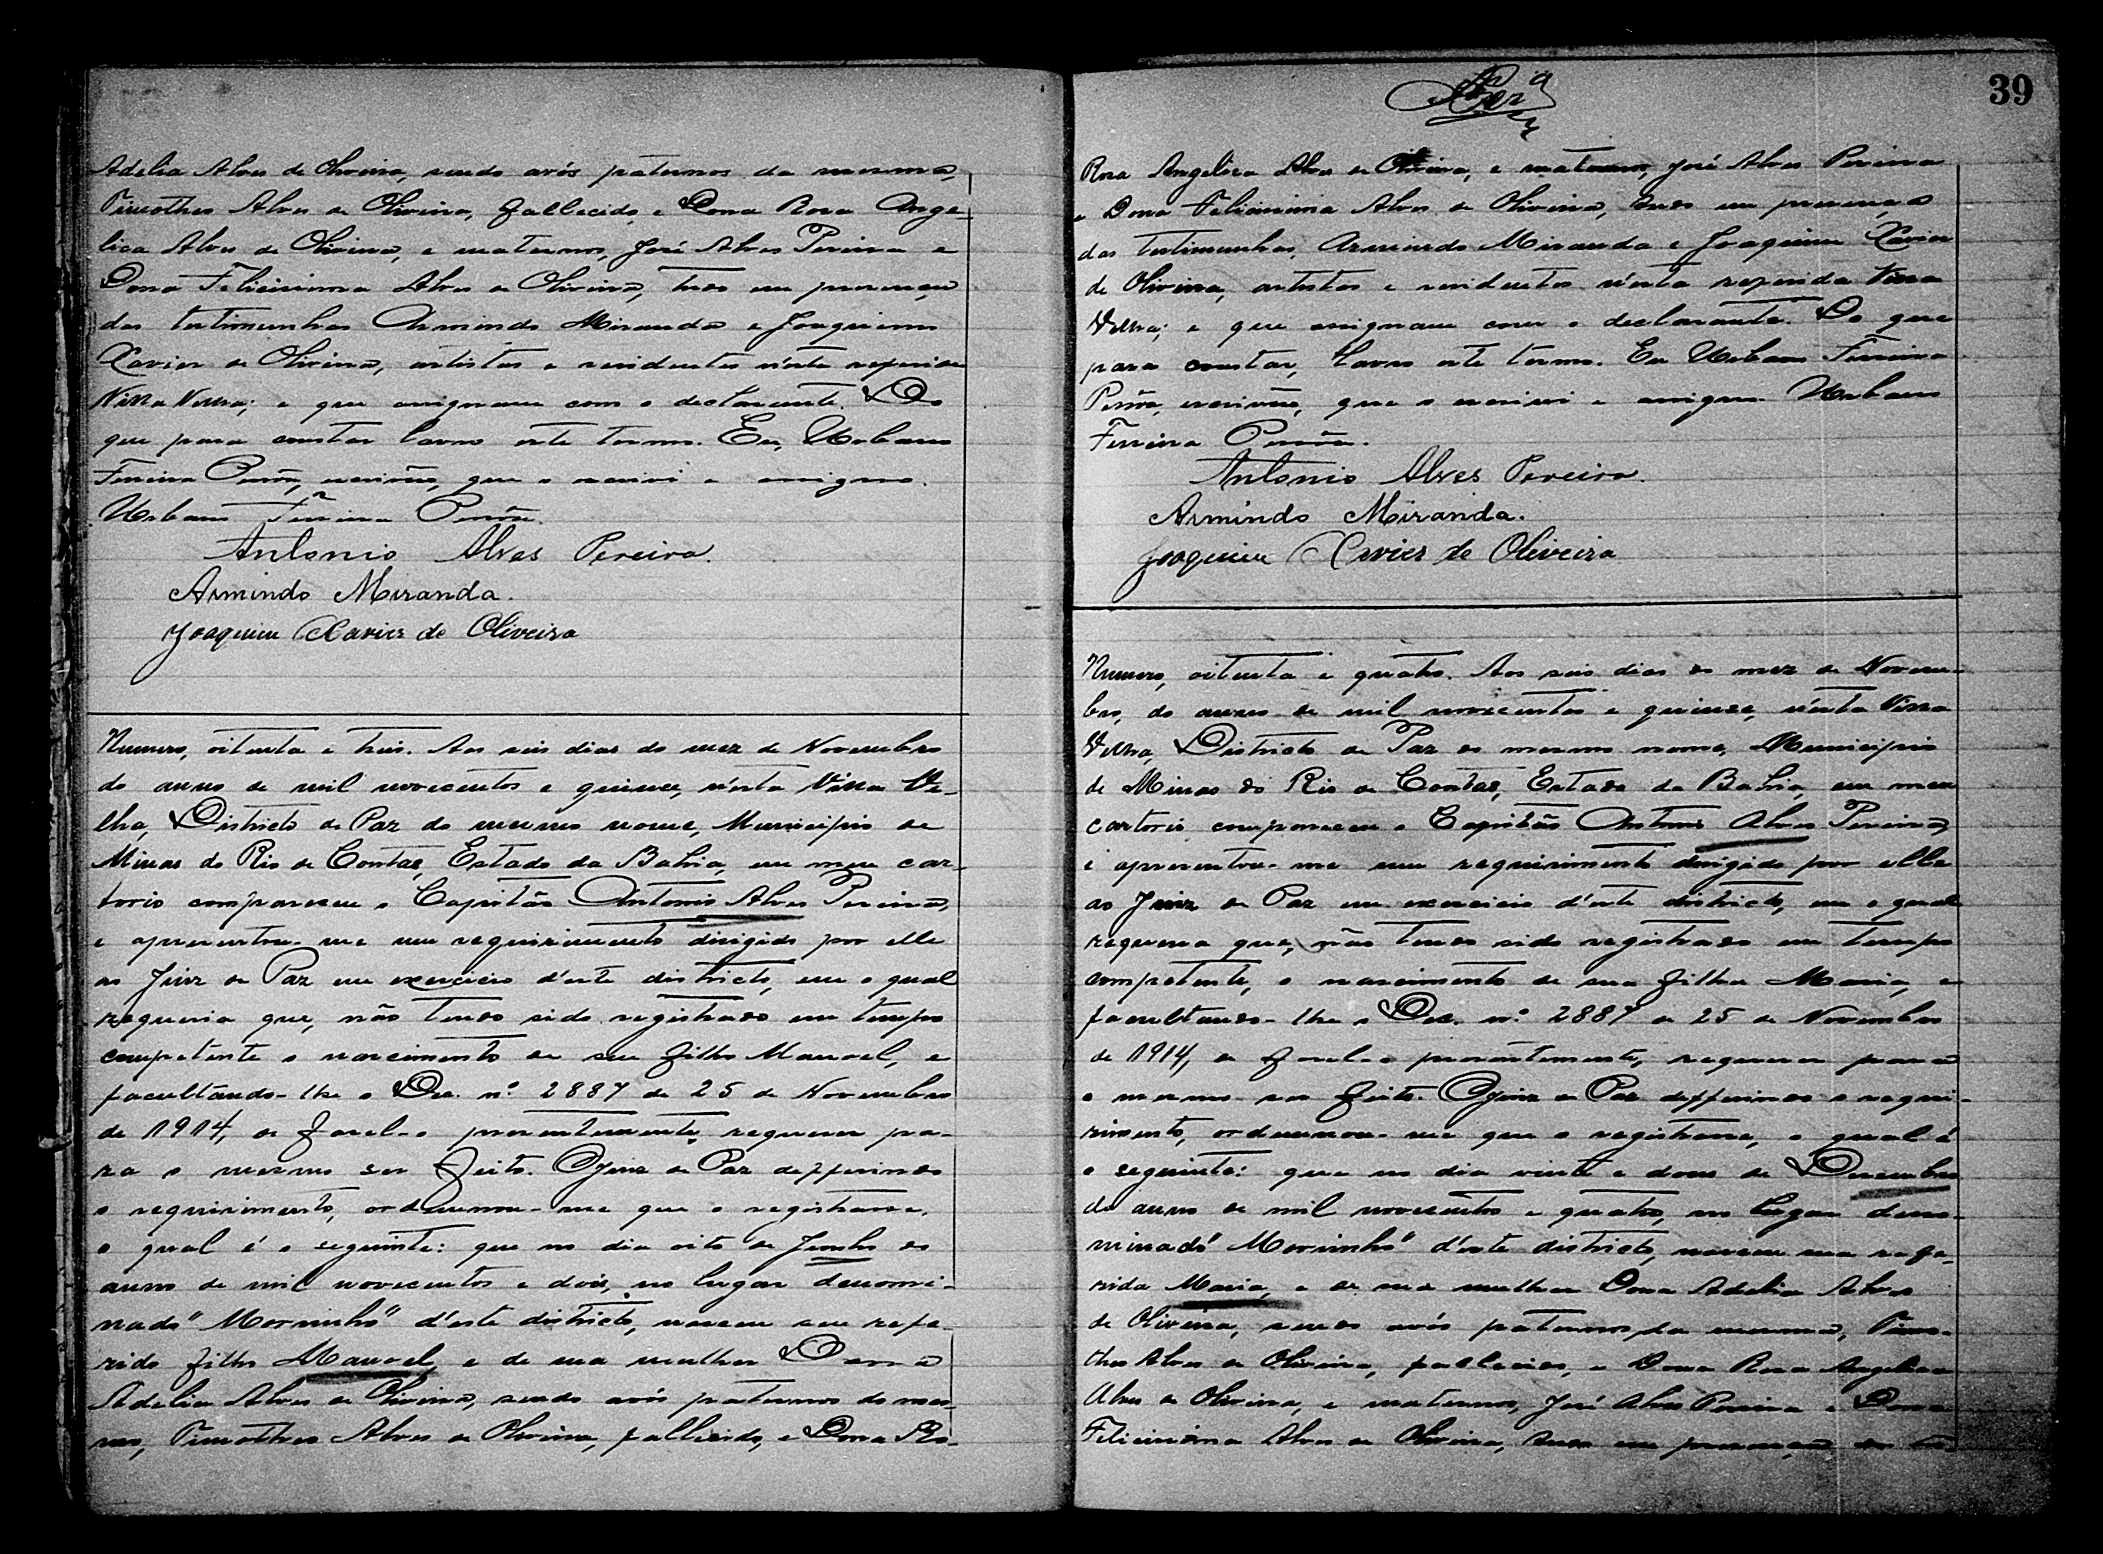 Adelia Alves de Oliveira, sendo avós paternos da mesma,
Timotheo Alves de Oliveira, fallecido, e Dona Rosa Ange-
lica Alves de Oliveira, e maternos, José Alves Pereira e
Dona Felicissima Alves de Oliveira, tudo em presença
das testimunhas Armindo Miranda e Joaquim
Xavier de Oliveira, artistas e residentes n'esta referida
Villa Velha; e que assignam com o declarante. Do
que para constar lavro este termo. Eu, Urbano
Ferreira Pessôa, escrivão, que o escrivi e assigno.
Urbano Ferreira Pessôa.
Antonio Alves Pereira.
Armindo Miranda.
Joaquim Xavier de Oliveira
Numero, oitenta e tres. Aos seis dias do mez de Novembro
do anno de mil novecentos e quinze, n'esta Villa Ve-
lha, Districto de Paz do mesmo nome, Municipio de
Minas do Rio de Contas, Estado da Bahia, em meu car-
torio compareceu o Capitão Antonio Alves Pereira,
e apresentou-me um requirimento dirigido por elle
ao Juiz de Paz em exercicio d'este districto, em o qual
requeria que, não tendo sido registrado em tempo
competente o nascimento de seu filho Manoel, e
facultando-lhe o Dec. nº 2887 de 25 de Novembro
de 1914, de fazel-o presentemente, requerer pa-
ra o mesmo ser feito. O Juiz de Paz defferindo
o requirimento, ordennou-me que o registrasse,
o qual é o seguinte: que no dia oito de Junho do
anno de mil novecentos e dois, no lugar denomi-
nado "Morrinho" d'este districto, nasceu seu refe-
rido filho Manoel, e de sua mulher Dona
Adelia Alves de Oliveira, sendo avós paternos do mes-
mo, Timotheo Alves de Oliveira, fallecido, e Dona Ro-
39
Rosa Angelica Alves de Oliveira, e maternos, José Alves Pereira
e Dona Felicissima Alves de Oliveira, tudo em presença
das testimunhas, Armindo Miranda e Joaquim Xavier
de Oliveira, artistas e residentes n'esta referida Villa
Velha; e que assignam com o declarante. Do que
para constar, lavro este termo. Eu Urbano Ferreira
Pessôa, escrivão, que o escrivi e assigno. Urbano
Ferreira Pessôa.
Antonio Alves Pereira.
Armindo Miranda.
Joaquim Xavier de Oliveira
Numero, oitenta e quatro. Aos seis dias do mez de Novem-
bro, do anno de mil novecentos e quinze, n'esta Villa
Velha, Districto de Paz do mesmo nome, Municipio
de Minas do Rio de Contas, Estado da Bahia, em meu
cartorio compareceu o Capitão Antonio Alves Pereira,
e apresentou-me um requirimento dirigido por elle
ao Juiz de Paz em exercicio d'este districto, em o qual
requeria que, não tendo sido registrado em tempo
competente, o nascimento de sua filha Maria, e
facultando-lhe o Dec. nº 2887 de 25 de Novembro
de 1914, de fazel-o presentemente, requerer para
o mesmo ser feito. O Juiz de Paz defferindo o requi-
rimento, ordennou-me que o registrasse, o qual é
o seguinte: que no dia vinte e dous de Dezembro
do anno de mil novecentos e quatro, no lugar deno-
minado "Morrinho" d'este districto, nasceu sua refe-
rida Maria, e de sua mulher Dona Adelia Alves
de Oliveira, sendo avós paternos da mesma, Timo-
theo Alves de Oliveira, fallecido, e Dona Rosa Angelica
Alves de Oliveira, e maternos, José Alves Pereira e Dona
Felicissima Alves de Oliveira, tudo em presença das tes-